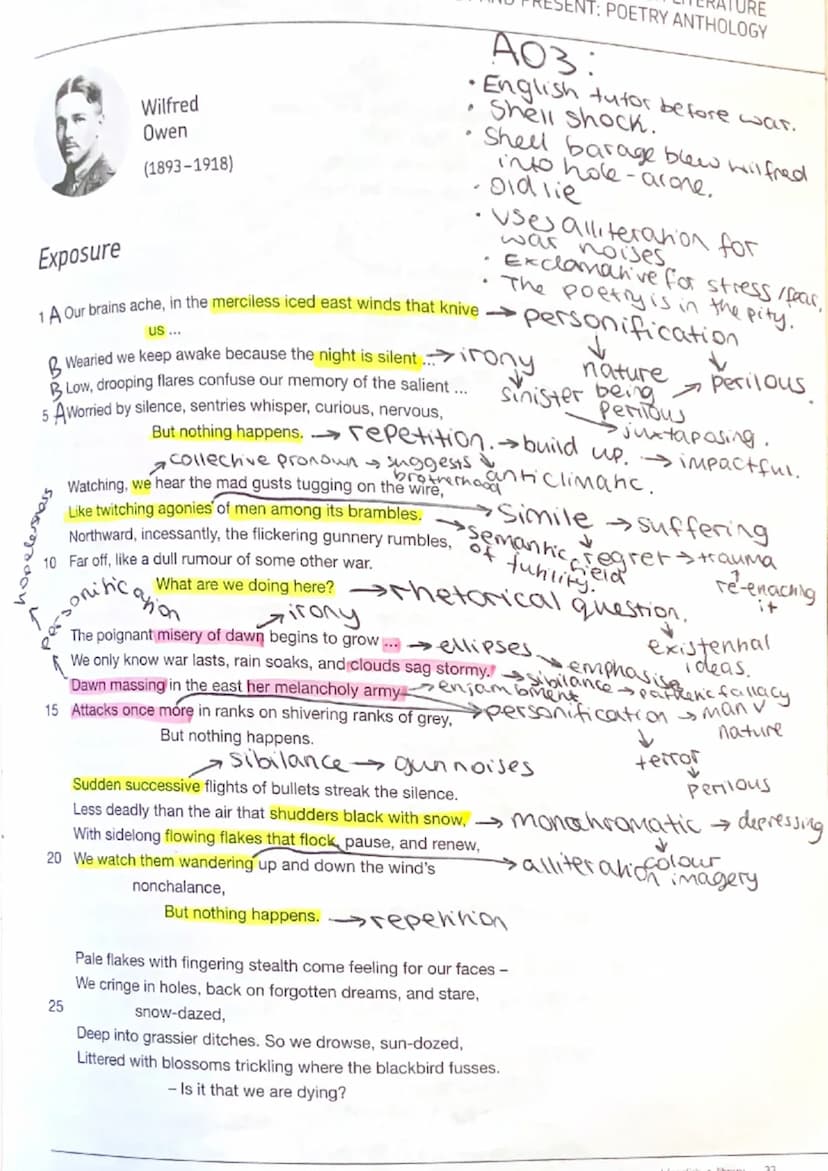 PRESENT: POETRY ANTHOLOGY
Wilfred
Owen
(1893–1918)
AO3:
• English tutor before war.
• Shell shock.
• Shell barage blew wilfred
into hole - alone.
• old lie
• uses alliteration for
war noises
• Exclamative for stress / fear.
• The poetry is in the pity.
Exposure
1 A Our brains ache, in the merciless iced east winds that knive → personification
us ...
B Wearied we keep awake because the night is silent ... → irony
nature
sinister being
perilous
→ perilous.
B Low, drooping flares confuse our memory of the salient ...
5 A Worried by silence, sentries whisper, curious, nervous,
juxtaposing.
But nothing happens. → repetition. → build up. → impactful.
anticlimatic.
collective pronoun → suggests
brotherhood
Watching, we hear the mad gusts tugging on the wire,
Like twitching agonies of men among its brambles.
simile → suffering
Northward, incessantly, the flickering gunnery rumbles,
semantic field
of futility.
regret → trauma
re-enacting
it
10 Far off, like a dull rumour of some other war.
What are we doing here? → rhetorical question.
existential
ideas.
hopelessness
personification
→ irony
The poignant misery of dawn begins to grow ... → ellipses
emphasise
We only know war lasts, rain soaks, and clouds sag stormy. → sibilance → pathetic fallacy
Dawn massing in the east her melancholy army → enjambment
15 Attacks once more in ranks on shivering ranks of grey,
→ personification → man v
nature
terror
perilous
But nothing happens.
→ sibilance → gun noises
Sudden successive flights of bullets streak the silence.
Less deadly than the air that shudders black with snow, → monochromatic → depressing
colour
imagery
With sidelong flowing flakes that flock, pause, and renew,
→ alliteration
20 We watch them wandering up and down the wind's
nonchalance,
But nothing happens. → repetition
Pale flakes with fingering stealth come feeling for our faces –
We cringe in holes, back on forgotten dreams, and stare,
25 snow-dazed,
Deep into grassier ditches. So we drowse, sun-dozed,
Littered with blossoms trickling where the blackbird fusses.
– Is it that we are dying?